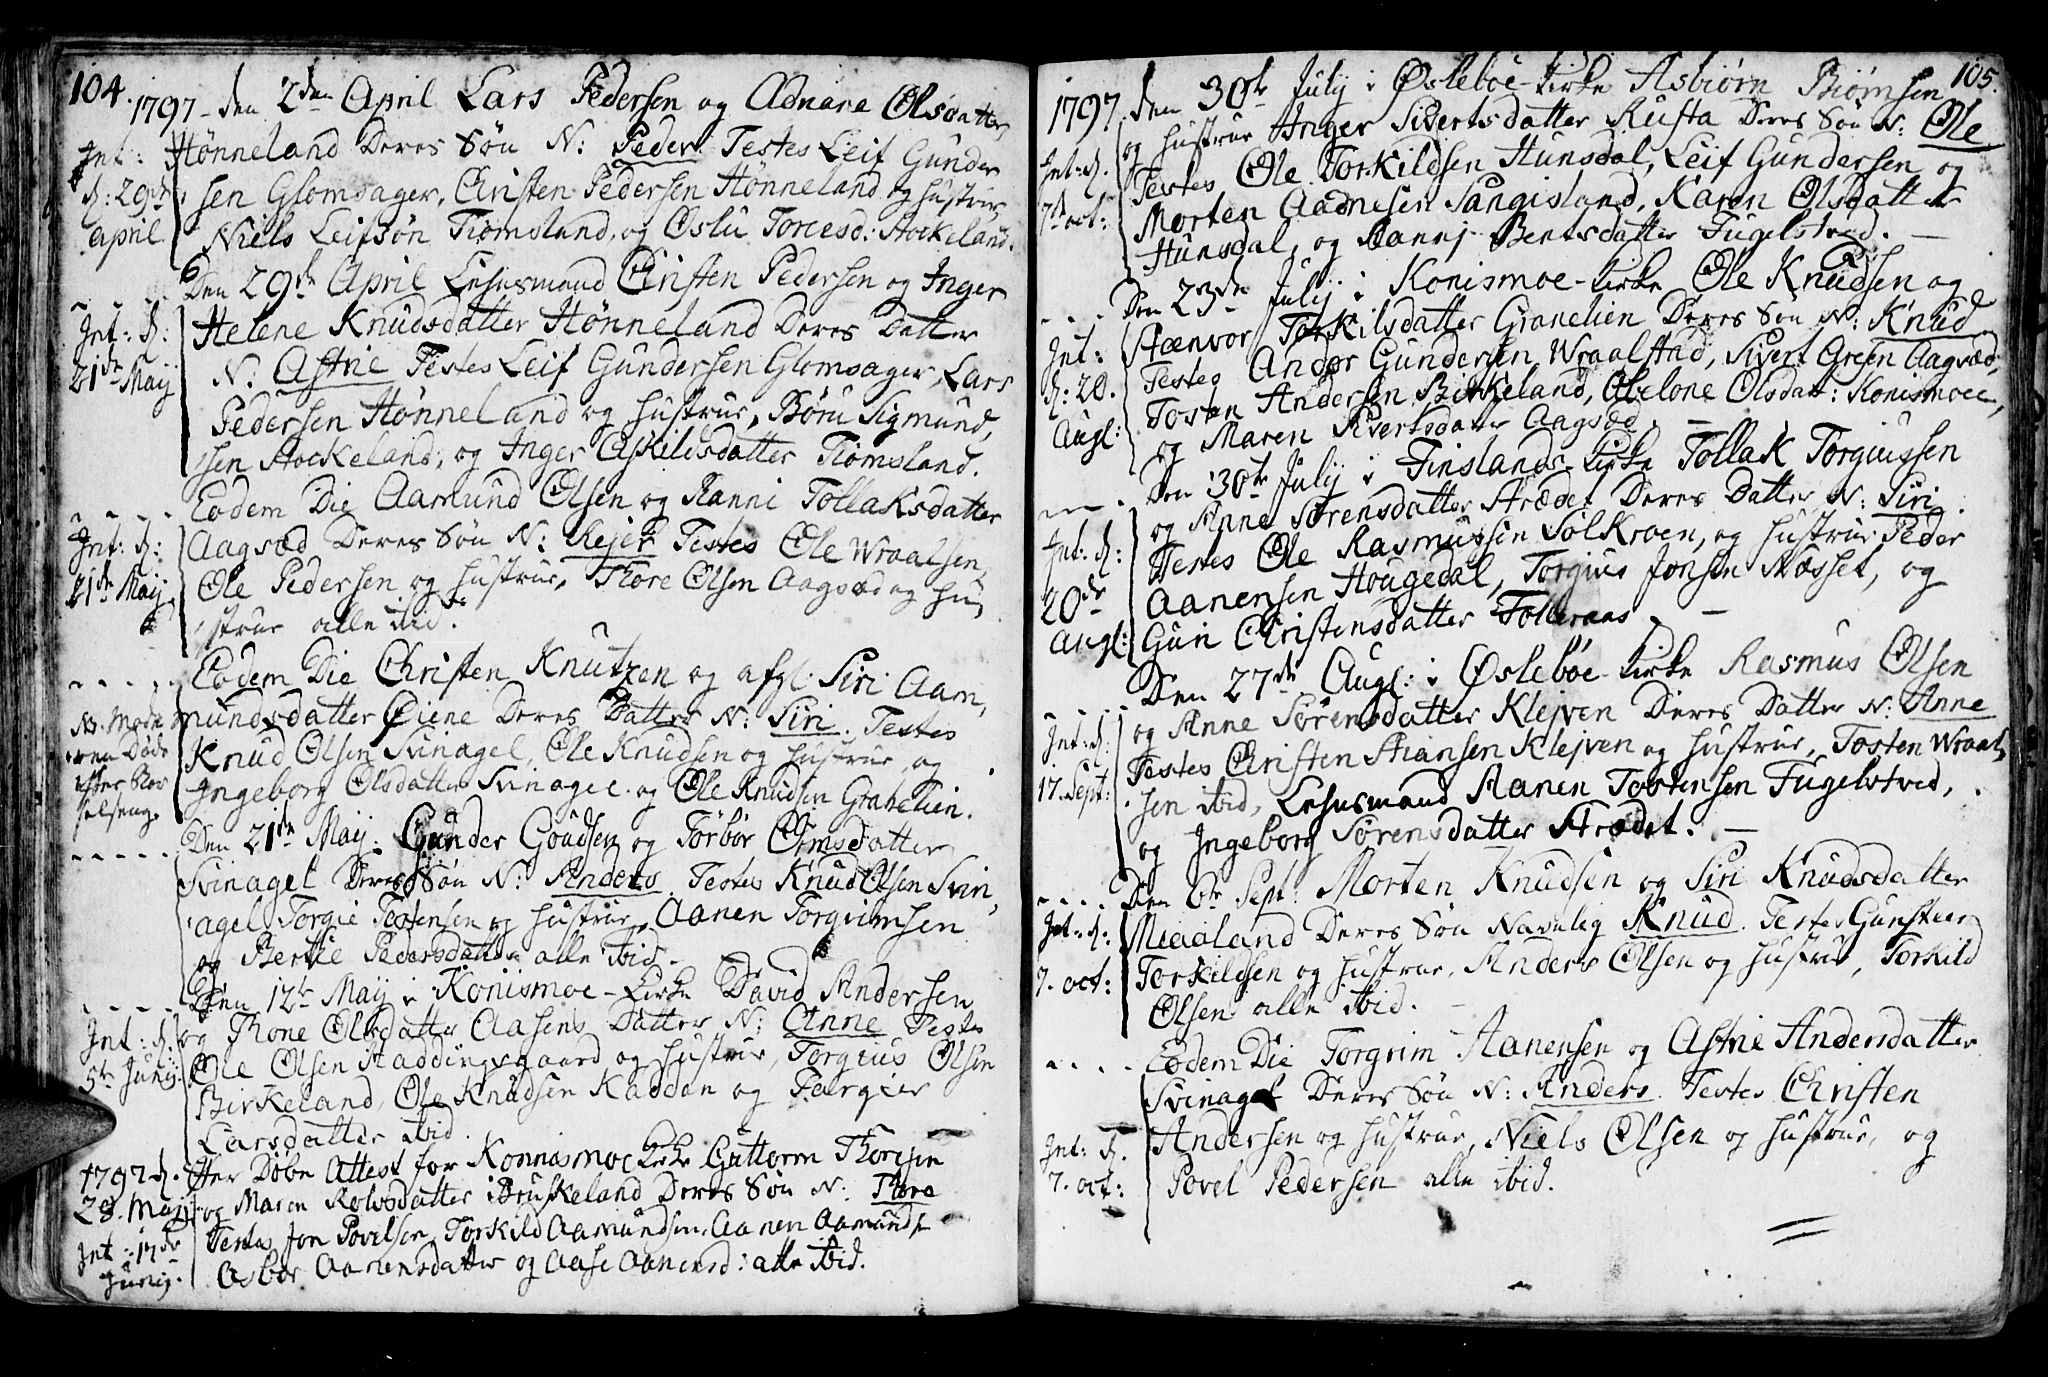 104.
1797- den 2den April Lars Pedersen og Adnara Olsdatter
Hönneland Deres Sön N: Peder Testes Leif Gunder
sen Glomsager, Christen Pedersen Hönneland og hustrue,
Niels Leifsön Tiomsland, og Oslu Torresd: Stockeland.
Int:
d: 29de
april
Den 29de April Lehnsmand Christen Pedersen og Inger
Helene Knudsdatter Hönneland Deres Datter
N: Astrie Testes Leif Gundersen Glomsager, Lars
Pedersen Hönneland og hustrue, Böru Sigmund,
sen Stockeland, og Inger Askildsdatter Tiomsland.
Int: d:
21de Maij
Eodem Die Aamund Olsen og Ranni Tollaksdatter
Aagsæd Deres Sön N: Rejer Testes Ole Wraalsen,
Ole Pedersen og hustrue, Thore Olsen Aagsæd og hu,
strue alle ibid.
Int: d:
21de Maij
Eodem Die Christen Knutzen og afgl: Siri Aam,
mundsdatter Öiene Deres Datter N: Siri. Testes
Knud Olsen Svinagel, Ole Knudsen og hustrue, og
Ingeborg Olsdatter Svinagel og Ole Knudsen Granelien.
N: Mode
ren Döde
efter Bar
selseng.
Den 21de Maij Gunder Goudsen og Torbor Omsdatter
Svinagel Deres Sön N: Anders. Testes Knud Olsen Svin,
agel, Torgie Tostensen og hustrue, Aanen Torgrimsen
og Berthe Pedersdatter alle ibid.
Den 12te Maij i Konismoe-Kirke David Andersen
og Thone Olsdatter Aasens Datter N: Anne Testes
Ole Olsen Haddingsgaard og hustrue, Torgius Olsen
Birkeland, Ole Knudsen Kaddan og Targier
Larsdatter ibid.
Int: d:
5te Junij.
Efter Döbe Attest for Konnesmoe Kirke Guttorm Thorsen
og Maren Rolvsdatter i Bruskeland Deres Sön N: Thore
Testes Jon Povelsen, Torkild Aamundsen, Aanen Aamunds
Asbor Aanensdatter og Aase Aanensd: alle ibid.
1797 d.
28. Maij
Int: 17de
Junij.
105.
1797. den 30te Julij i Ösleböe-Kirke Asbiörn Biörnsen
og hustrue Inger Sivertsdatter Rusta Deres Sön N: Ole
Testes Ole Torkildsen Hunsdal, Leif Gundersen og
Morten Aadnesen Sangisland, Karen Olsdatter
Hunsdal, og Ranni Bentsdatter Fugelstved.
Int: d.
7de oct:
Den 23de Julij i Konismoe-Kirke Ole Knudsen og
Stænvor Torkilsdatter Granelien Deres Sön N: Knud
Testes Andor Gundersen Wraalstad, Sivert Gresen Aagsæd,
Tosten Andersen Birkeland, Abelone Olsdatt: Konismoe,
og Maren Sivertsdatter Aagsæd.
Int:
d: 20.
Augl:
Den 30te Julij i Finslands Kirke Tollak Torgiussen
og Anne Sörensdatter Strædet Deres Datter N: Siri.
Testes Ole Rasmussen Solkroen, og hustrue Peder
Aanensen Hougedal, Torgius Jonsen Næsset, og
Guri Christensdatter Tolleraas.
Int: d:
20de
Augl:
Den 27de Augl: i Ösleböe-Kirke Rasmus Olsen
og Anne Sörensdatter Klejven Deres Datter N: Anne
Testes Christen Stiansen Klejven og hustrue, Tosten Wraal,
sen ibid, Lehnsmand Aanen Tostensen Fugelstved,
og Ingeborg Sörensdatter Strædet.
Int: d:
17. Sept:
Den 6te Sept: Morten Knudsen og Siri Knudsdatter
Miaaland Deres Sön Navnlig Knud. Testes Gunsteen
Torkildsen og hustrue, Anders Olsen og hustrue, Torkild
Olsen alle ibid.
Int: d:
7. oct:
Eodem Die Torgrim Aanensen og Astrie Andersdatter
Svinagel Deres Sön N: Anders. Testes Christen
Andersen og hustrue, Niels Olsen og hustrue, og
Povel Pedersen alle ibid.
Int: d.
7. oct: